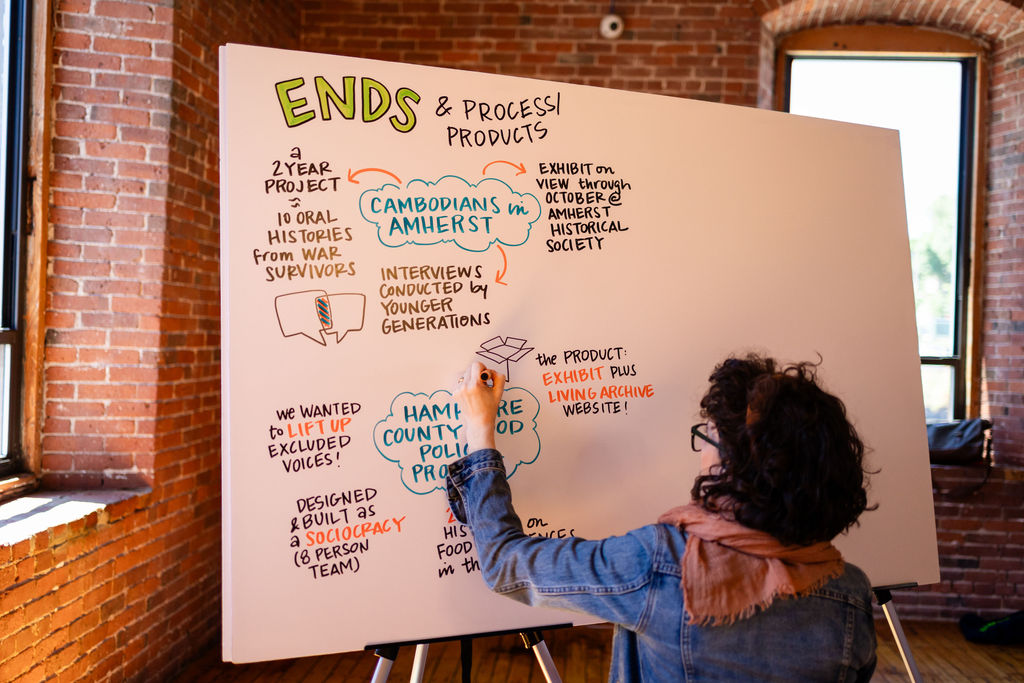 ENDS & PROCESS/
PRODUCTS
a
2 YEAR
PROJECT
10 ORAL
HISTORIES
from WAR
SURVIVORS
CAMBODIANS in
AMHERST
EXHIBIT on
VIEW through
OCTOBER @
AMHERST
HISTORICAL
SOCIETY
INTERVIEWS
CONDUCTED by
YOUNGER
GENERATIONS
the PRODUCT:
EXHIBIT PLUS
LIVING ARCHIVE
WEBSITE!
WE WANTED
to LIFT UP
EXCLUDED
VOICES!
COUNTY
DESIGNED
& BUILT as
a SOCIOCRACY
(8 PERSON
TEAM)
on
FOOD
in